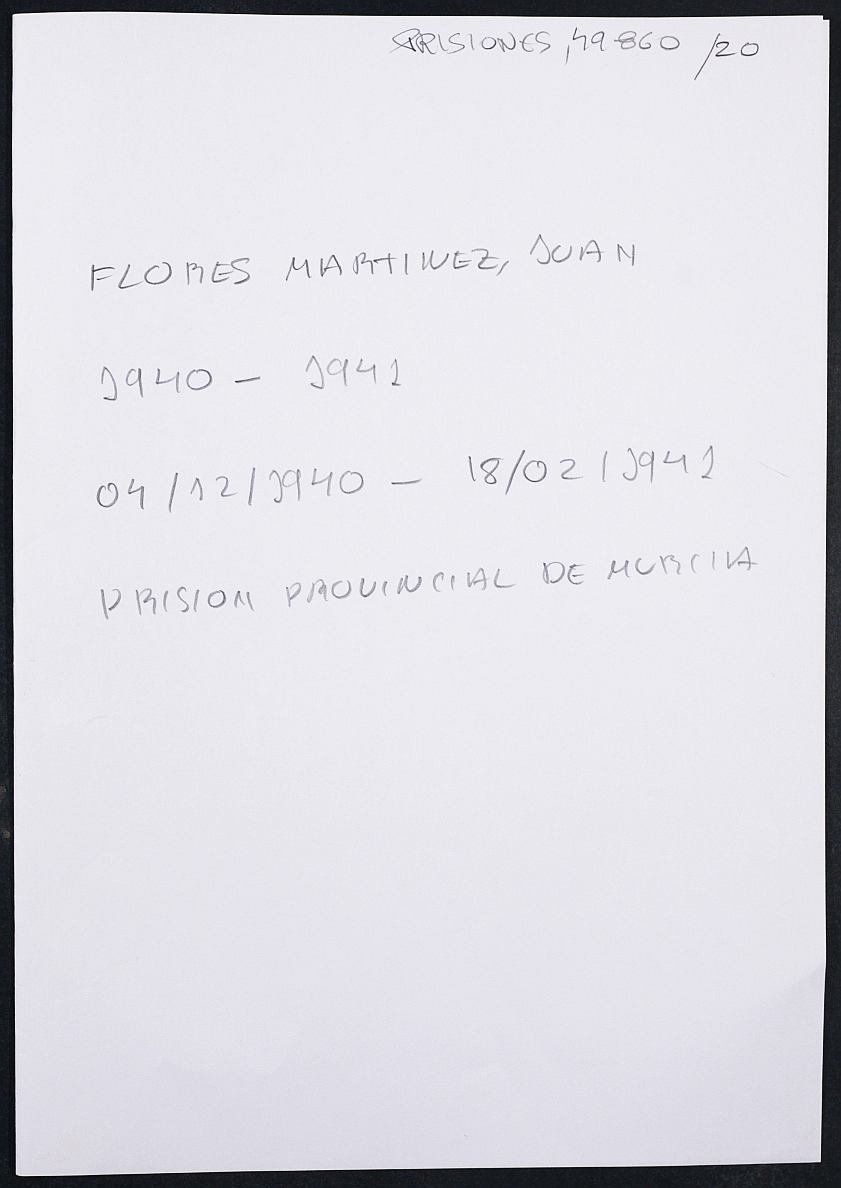 PRISIONES, 49860 /20
FLORES MARTINEZ, JUAN
1940 - 1941
04/12/1940 - 18/02/1941
PRISION PROVINCIAL DE MURCIA